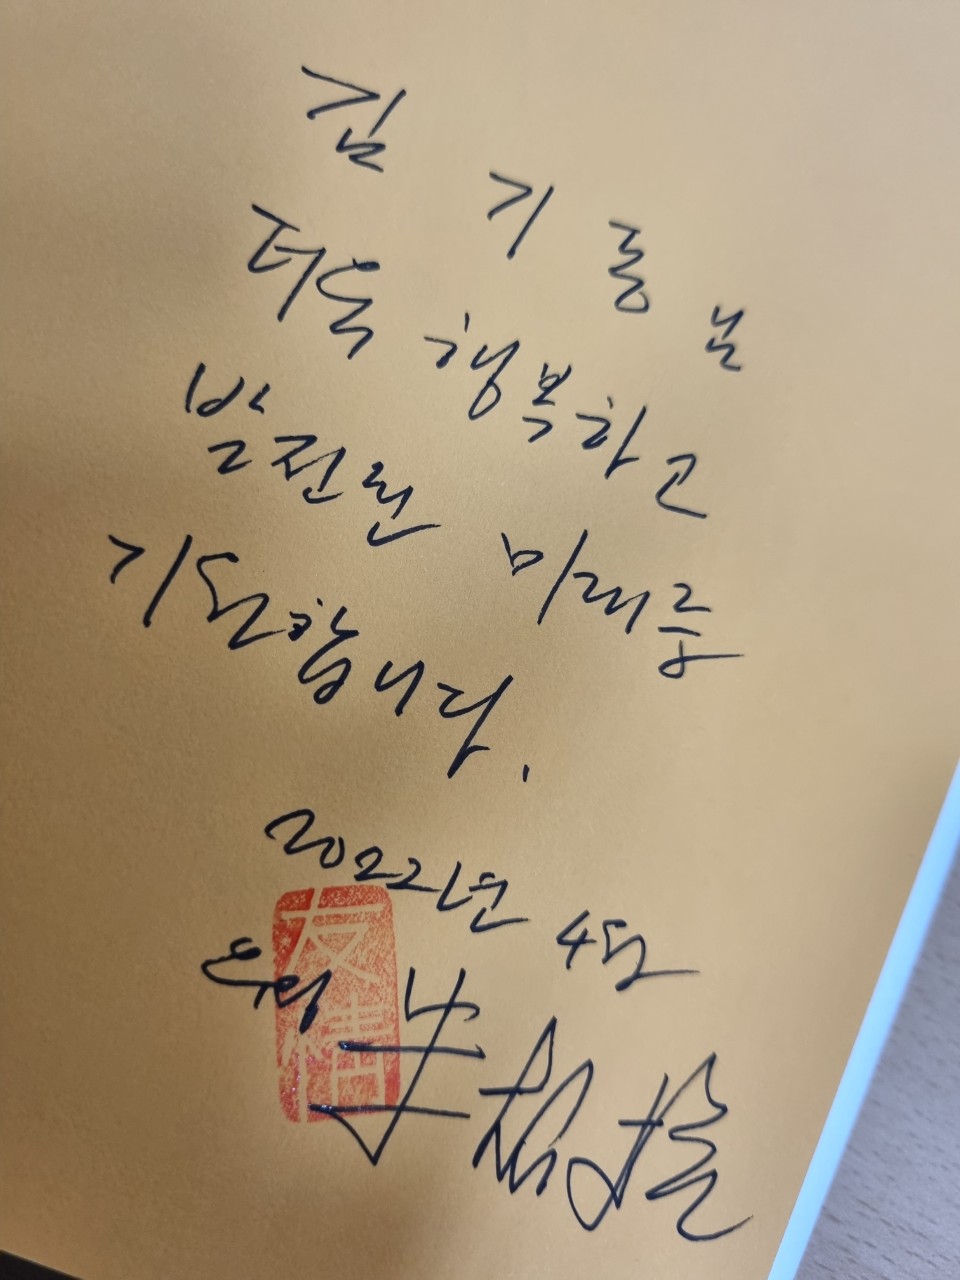 김 기 릉 님
더욱 행복하고
발전된 미래를
기원합니다.
2022년 4월
友情
우정